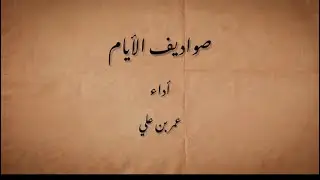 صواديف الأيام
أداء
عمر بن علي